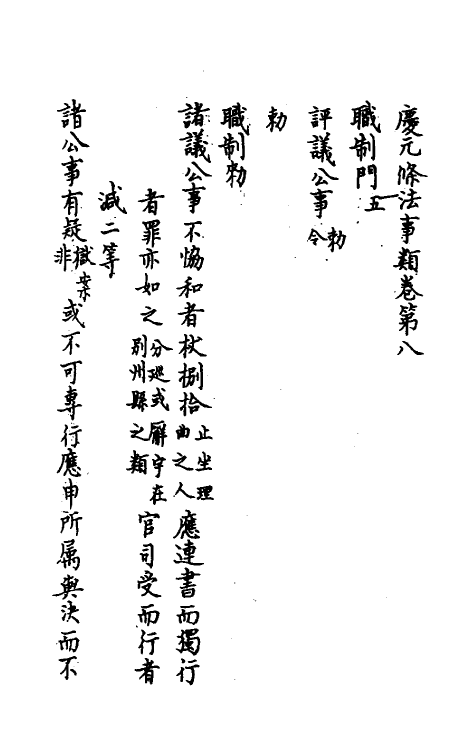 慶元條法事類卷第八
職制門五
評議公事 勅令
勅
職制勑
諸議公事不恊和者杖捌拾止坐理曲之人應連書而獨行
者罪亦如之分廵或廨宇在别州縣之類官司受而行者
减二等
諸公事有疑非獄案或不可專行應申所属與决而不